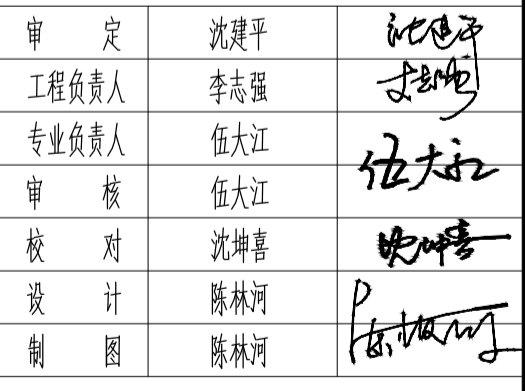 审 定 沈建平 沈建平
工程负责人 李志强 李志强
专业负责人 伍大江 伍大江
审 核 伍大江
校 对 沈坤喜 沈坤喜
设 计 陈林河 陈林河
制 图 陈林河